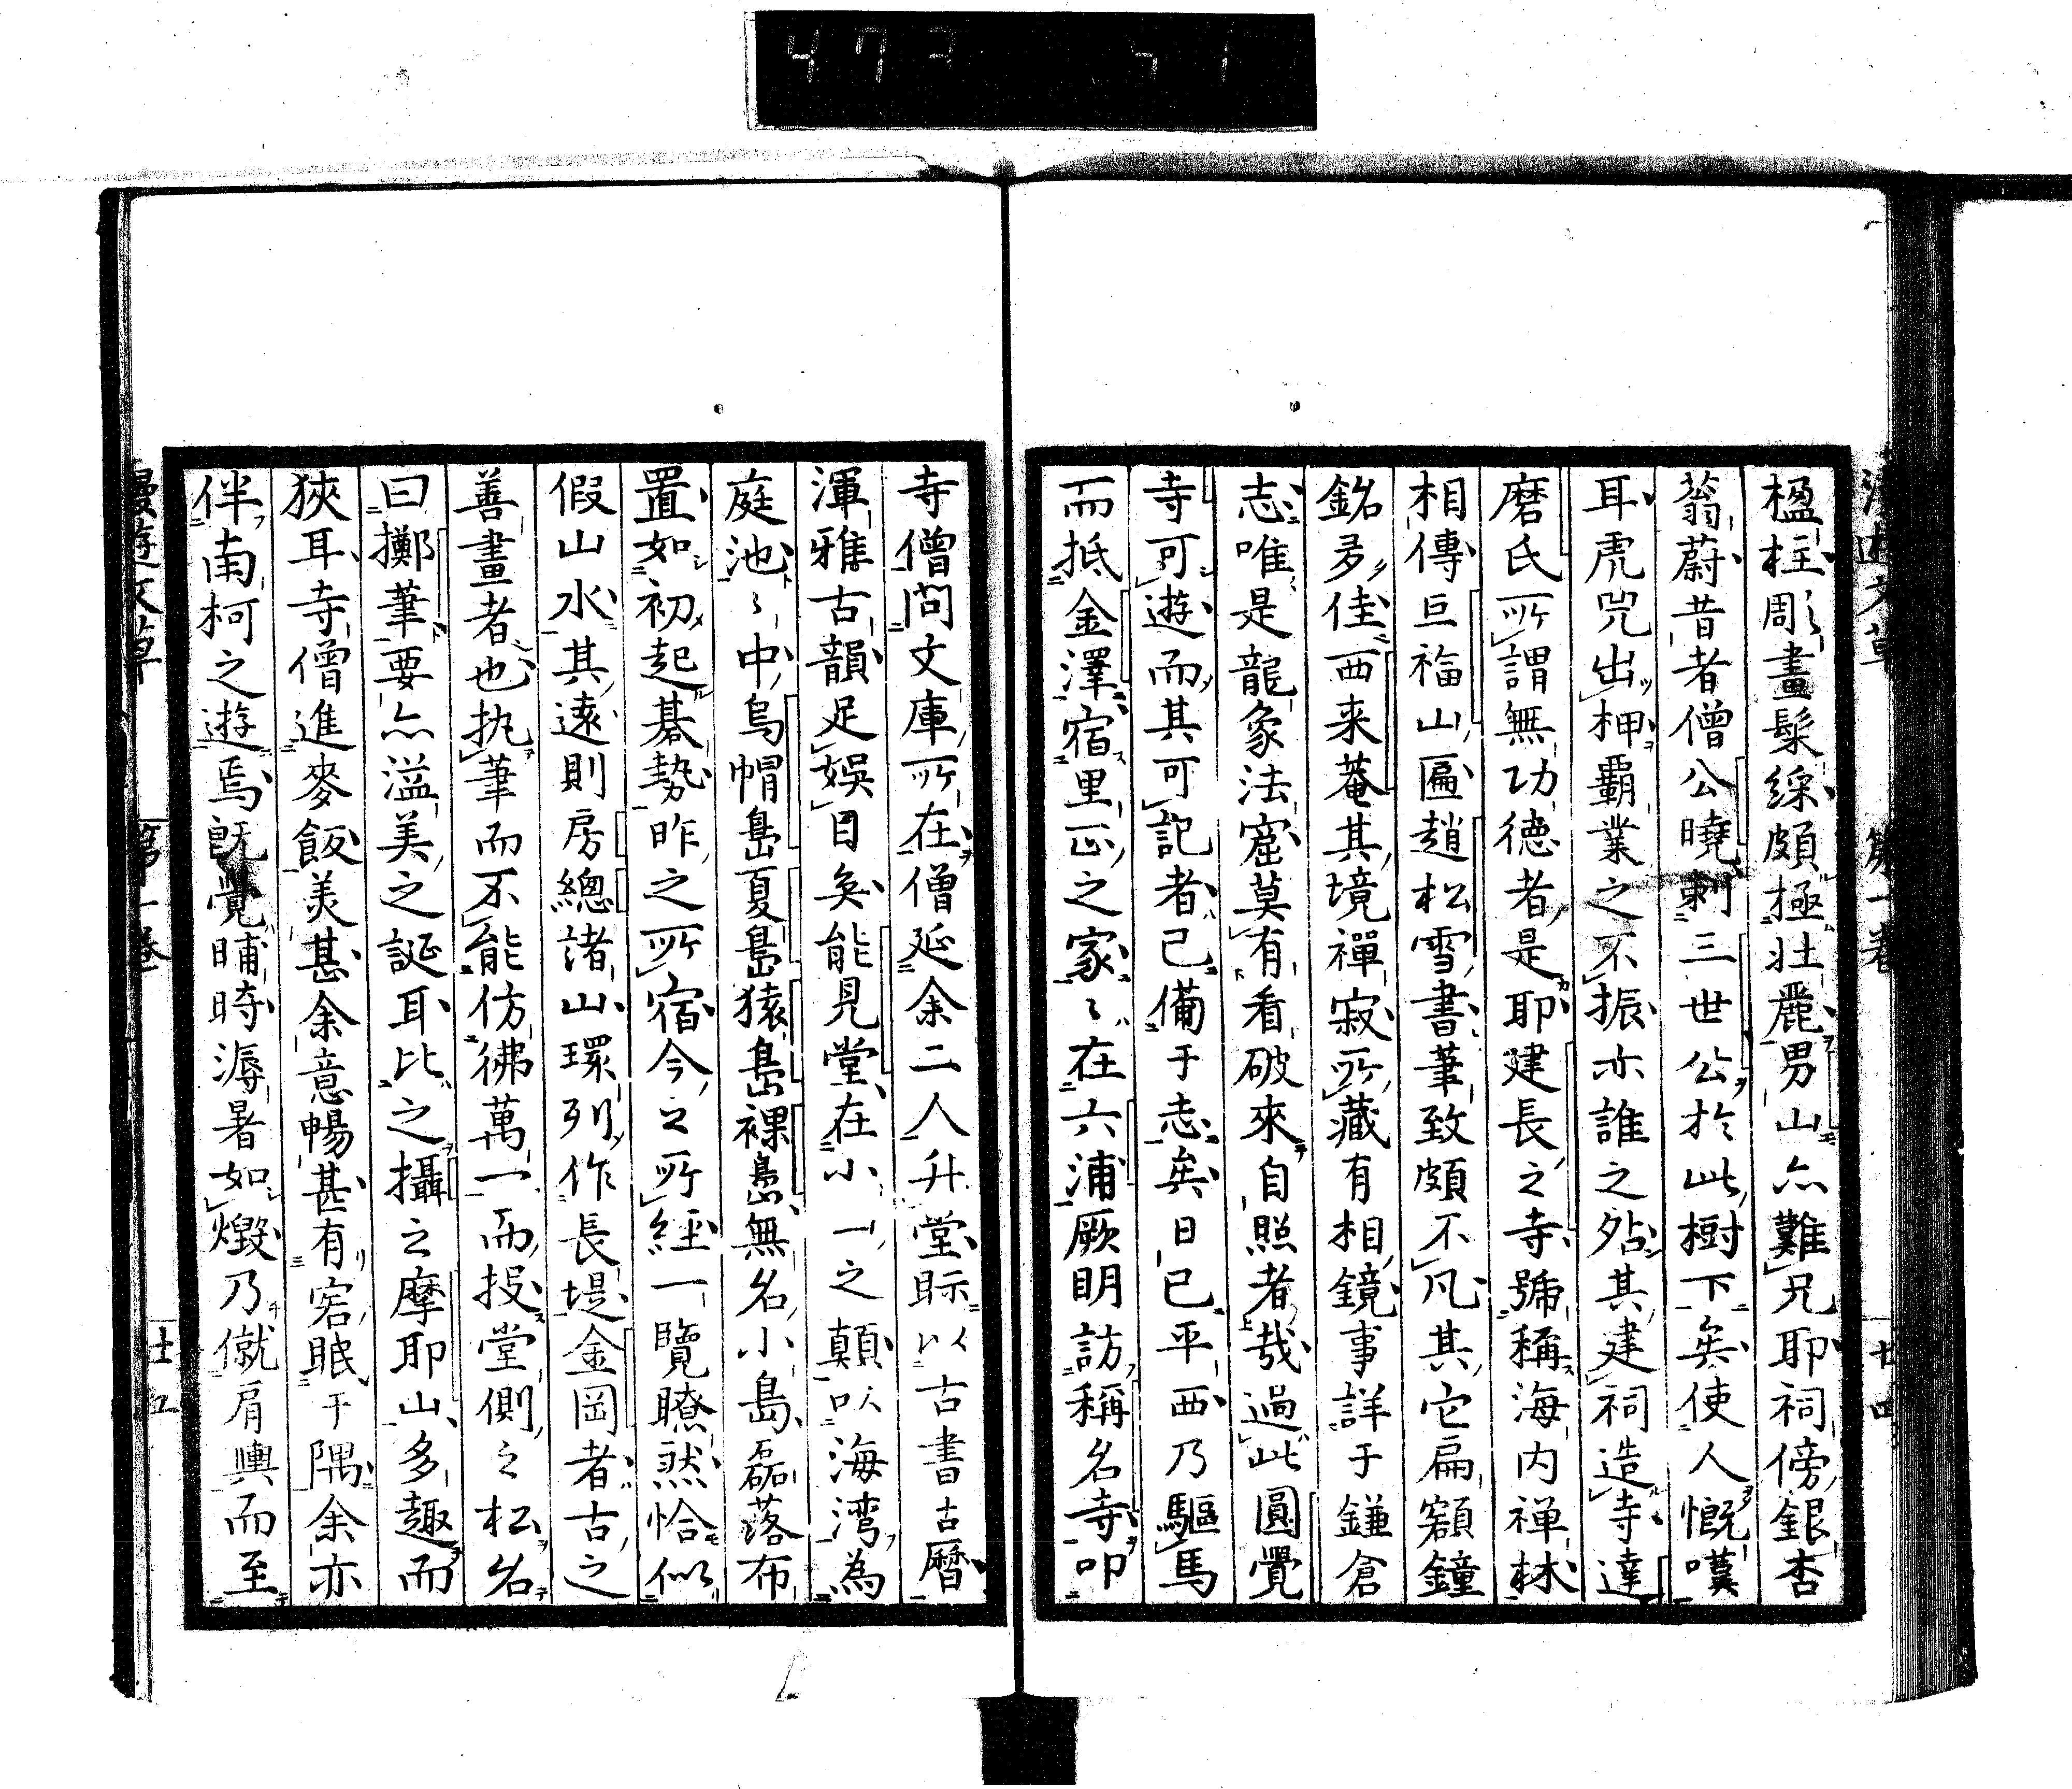 楹柱彫畫髹綵頗極壯麗男山亦難兄耶祠傍銀杏
蓊蔚昔者僧公曉刺三世公於此樹下矣使人慨嘆
耳虎兕出柙覇業之不振亦誰之咎其建祠造寺達
磨氏所謂無功德者是耶建長之寺號稱海内禅林
相傳巨福山匾趙松雪書筆致頗不凡其它扁額鐘
銘多佳西来菴其境禪寂所藏有相鏡事詳于鎌倉
志唯是龍象法窟莫有看破來自照者哉過此圓覺
寺可遊而其可記者已備于志矣日已平西乃驅馬
而抵金澤宿里正之家々在六浦厥明訪稱名寺叩
寺僧問文庫所在僧延余二人升堂眎以古書古曆
渾雅古韻足娯目矣能見堂在小山之顛以海湾為
庭池々中烏帽島夏島猿島裸島無名小島磊落布
置如初起碁勢昨之所宿今之所經一覽瞭然恰似
假山水其遠則房總諸山環列作長堤金岡者古之
善畫者也執筆而不能仿彿萬一而投堂側之松名
曰擲筆要亦溢美之誕耳比之攝之摩耶山多趣而
狹耳寺僧進麥飯美甚余意暢甚有宕眠于隅余亦
伴南柯之遊焉既覺晡時溽暑如燬乃僦肩輿而至
漫遊文草
第一卷
廿四
漫遊文草
第一卷
廿五